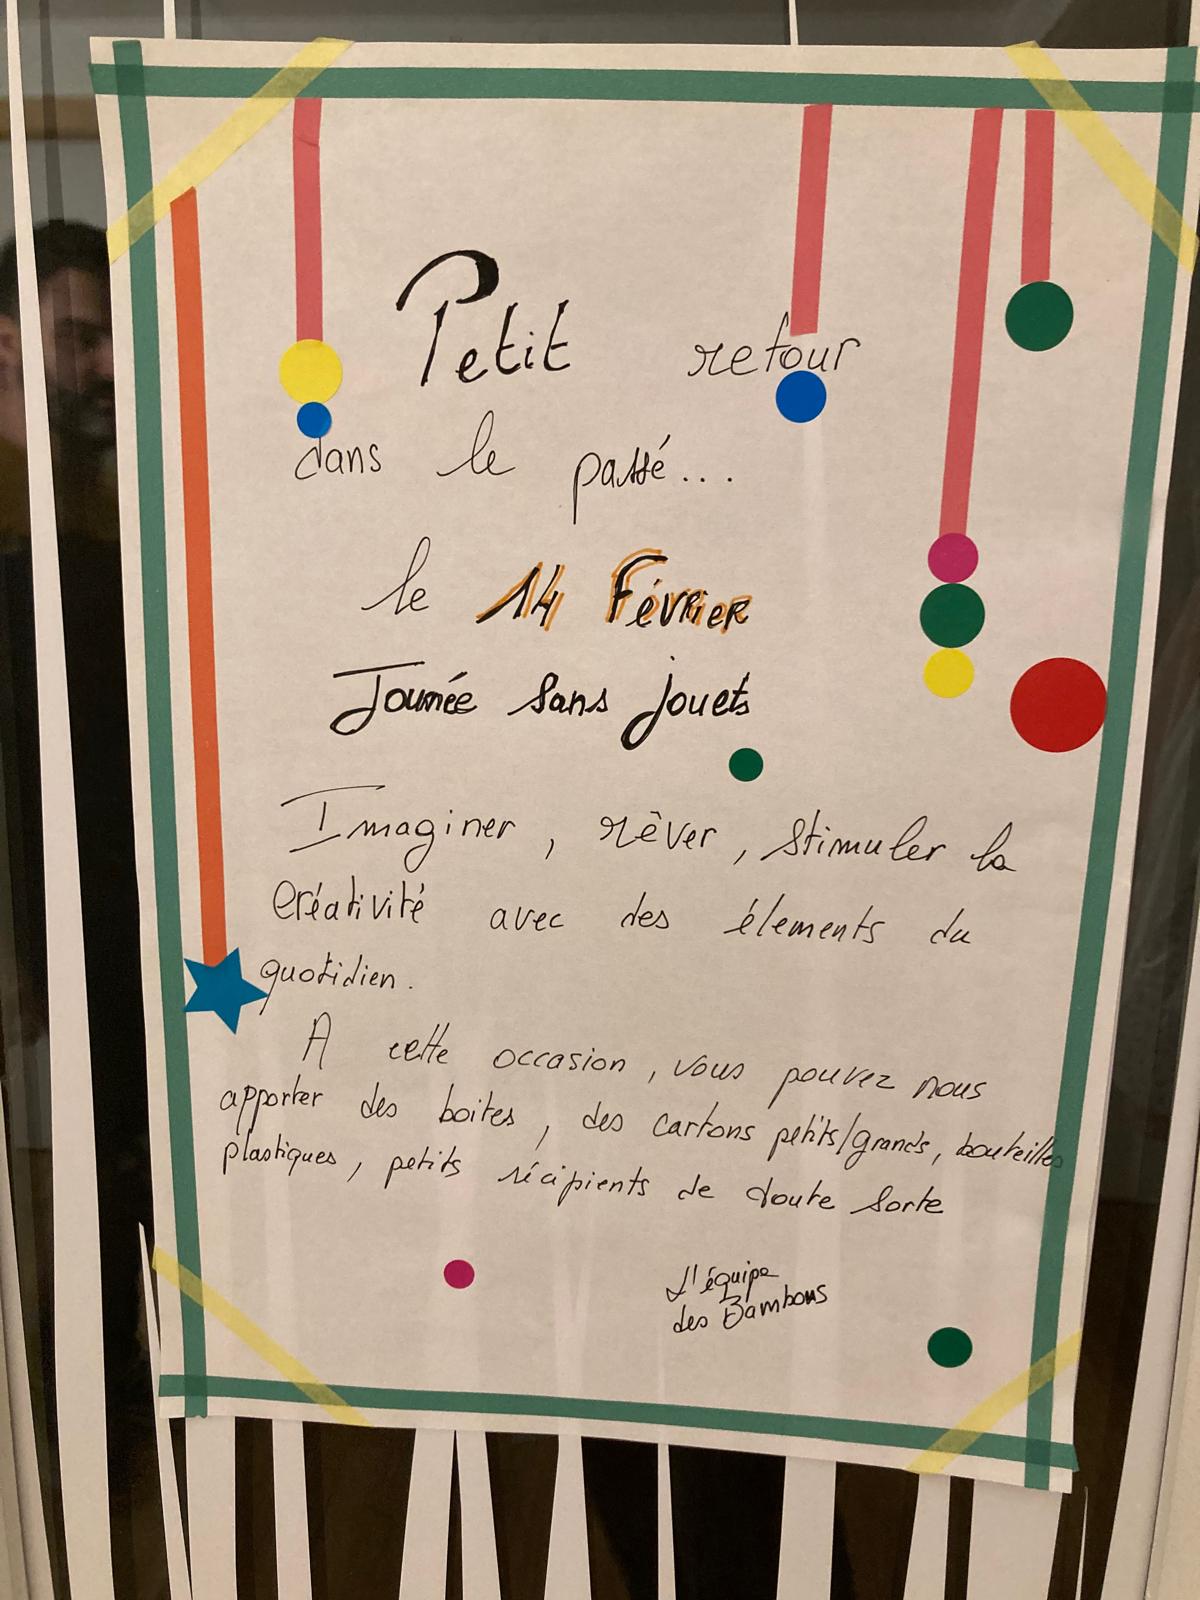 Petit retour
dans le passé...
le 14 Février
Journée sans jouets
Imaginer, rêver, stimuler la
créativité avec des élements du
quotidien.
A cette occasion, vous pouvez nous
apporter des boites, des cartons petits/grands, bouteilles
plastiques, petits récipients de toute sorte
L'équipe
des Bambous